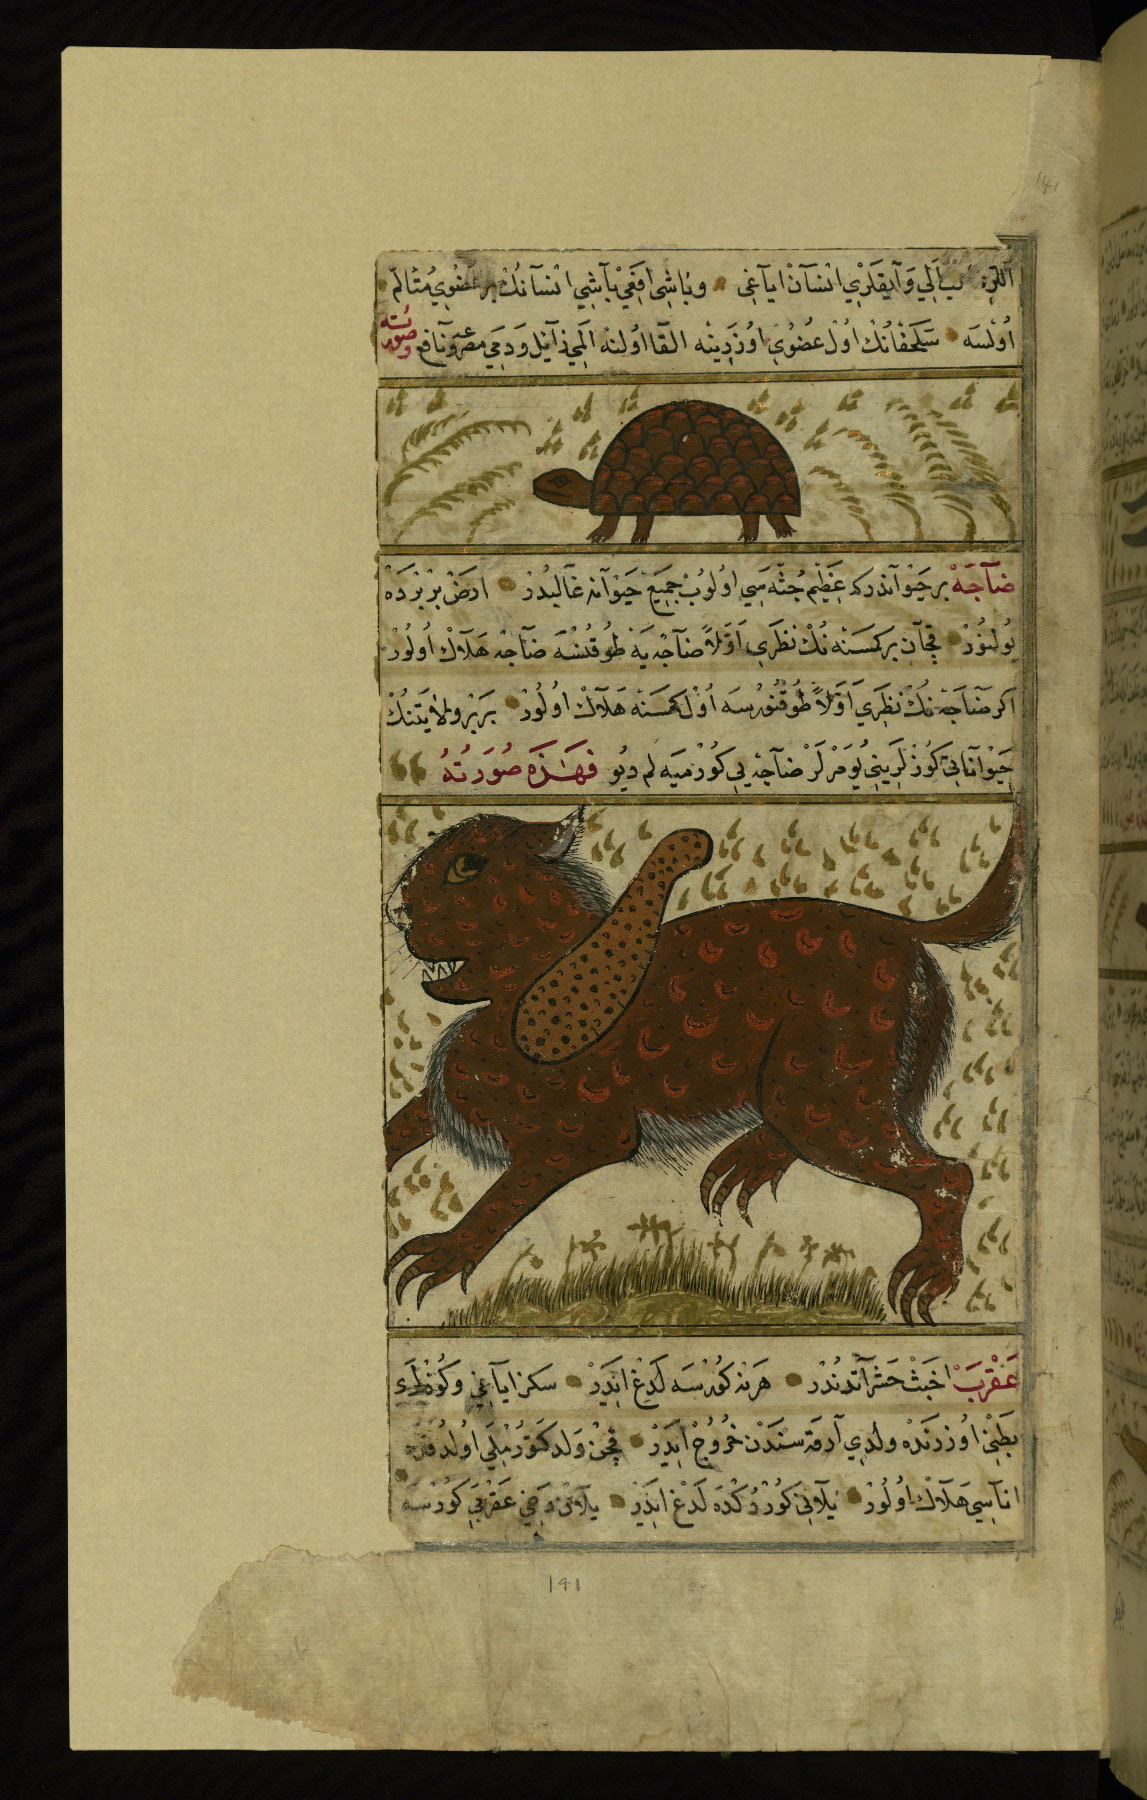 اللري وآيقلري انسان اياغي وباشي افغي باشي انسانك بر عضوي متالم
اولسه سلحفانك اول عضوي اوزرينه القا اولنه المي زايل ودمي صرعه نافع وصورته
ضآجَه بر حيوآندر كه عظيم جثه سي اولوب جميع حيوآنه غالبدر ارض بربرده
بولنور قچان بر كمسنه نك نظري اَوَّلاً ضآجه يه طوقنسه ضآجه هلاك اولور
اكر ضآجه نك نظري اَوَّلاً طوقنورسه اول كمسنه هلاك اولور بربر ولايتنك
حيوآناتي كوزلريني يومرلر ضآجه يي كورميه لم ديو فهذه صورته
عقرب اخبث حشرآتدندر هر نه كورسه لدغ ايدر سكز اياغي وكوزلري
بطني اوزرنده ولدي آرقه سندن خروج ايدر قچن ولد اولدقده
اناسي هلاك اولور يلاني كوردكده لدغ ايدر يلان دخي عقربي كورسه
141
141